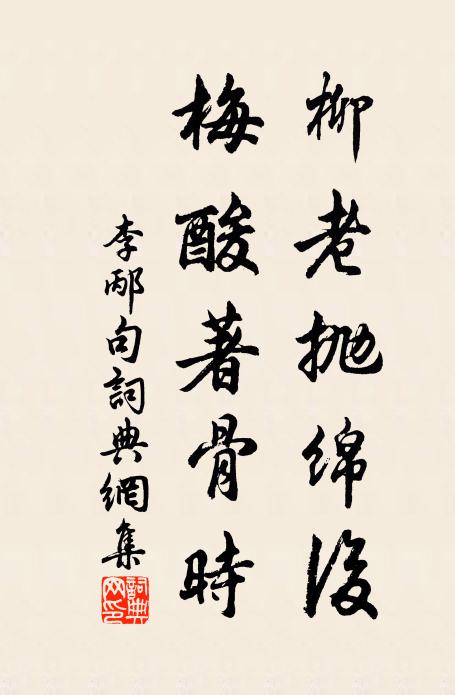 柳老抛绵後
梅酸著骨時
李邴句詞典網集
詞典网印